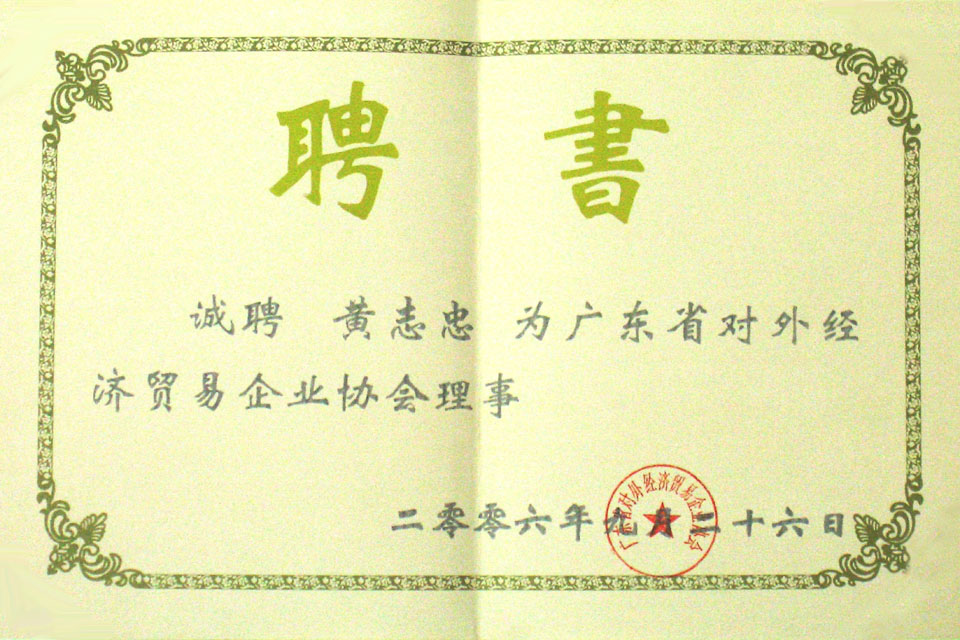 聘书
诚聘 黄志忠 为广东省对外经
济贸易企业协会理事
二零零六年九月二十六日
广东省对外经济贸易企业协会